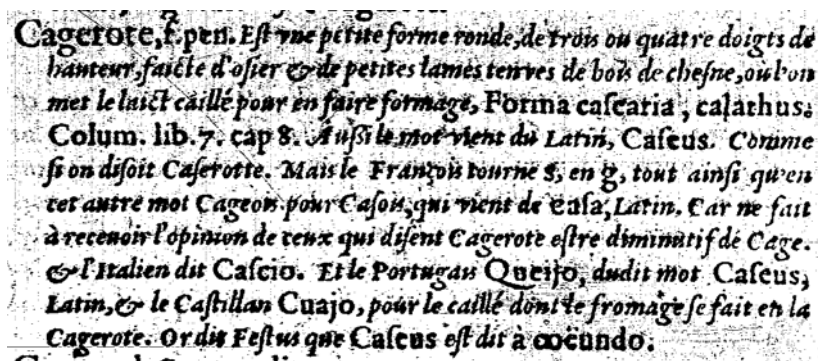 Cagerote, f. pen. Est vne petite forme ronde, de trois ou quatre doigts de
hauteur, faicte d'osier & de petites lames tenves de bois de chesne, ou l'on
met le laict caillé pour en faire formage, Forma cascaria, calathus.
Colum. lib. 7. cap 8. Aussi le mot vient du Latin, Caseus. Comme
si on disoit Caserotte. Mais le François tourne s, en g, tout ainsi qu'en
cet autre mot Cageon pour Cason, qui vient de casa, Latin. Car ne fait
à receuoir l'opinion de ceux qui disent Cagerote estre diminutif de Cage.
& l'Italien dit Cascio. Et le Portugais Queijo, dudit mot Caseus,
Latin, & le Castillan Cuajo, pour le caillé dont le fromage se fait en la
Cagerote. Or dit Festus que Caseus est dit à coeundo.